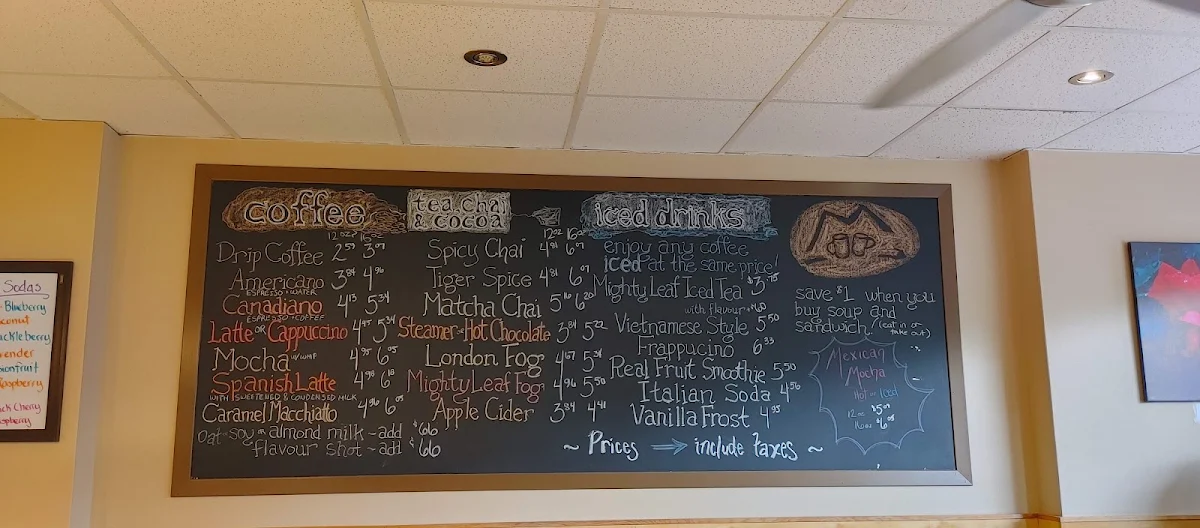 Sodas
Blueberry
conut
uckleberry
vender
sionfruit
Raspberry
ack Cherry
aspberry
coffee
12oz 16oz
Drip Coffee
Americano 3.84 4.96
ESPRESSO + WATER
Canadiano 4.13 5.34
ESPRESSO + COFFEE
Latte or Cappuccino 4.45 5.34
Mocha w/ whip 4.95 6.05
Spanish Latte
WITH SWEETENED & CONDENSED MILK
Caramel Macchiato 4.96 6.05
oat-soy or almond milk - add $.66
flavour shot - add $.66
tea, chai & cocoa
12oz 16oz
Spicy Chai
Tiger Spice
Matcha Chai
Steamer or Hot Chocolate 3.84 5.22
London Fog 4.67 5.34
Mighty Leaf Fog 4.96 5.50
Apple Cider 3.84 4.41
iced drinks
enjoy any coffee
iced at the same price!
Mighty Leaf Iced Tea $3.75
with flavour +.60
Vietnamese Style 5.50
Frappucino 6.33
Real Fruit Smoothie 5.50
Italian Soda 4.56
Vanilla Frost 4.95
~ Prices → include taxes ~
save $1 when you
buy soup and
sandwich. (eat in or
take out)
Mexican
Mocha
Hot or Iced
12oz $5.05
16oz $6.05